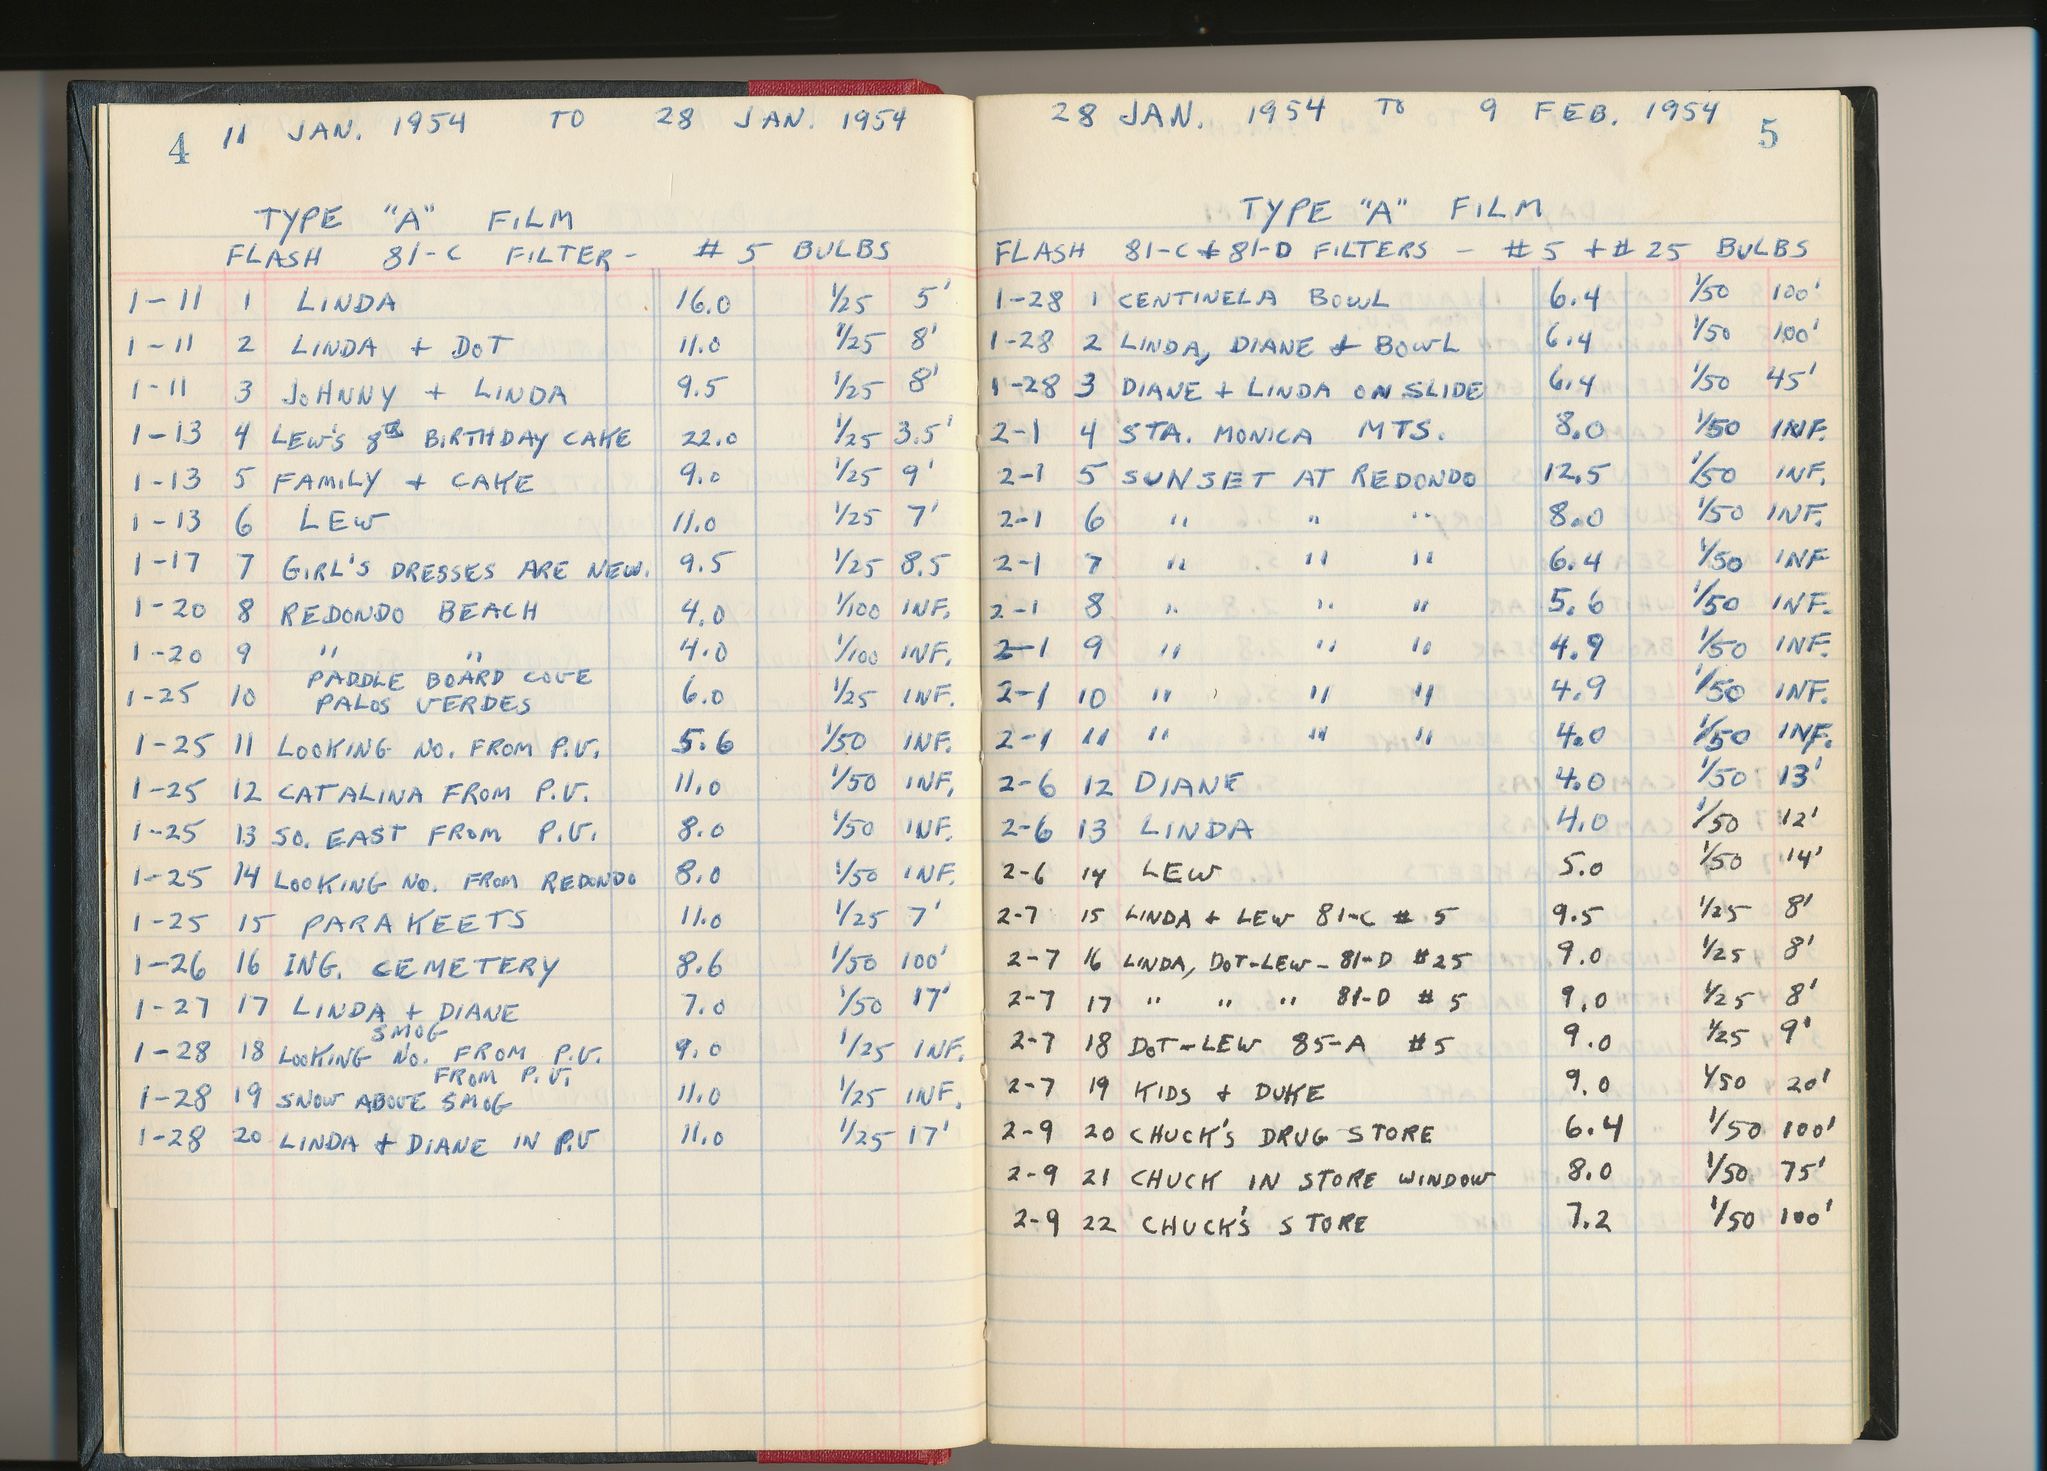 4 11 JAN. 1954 TO 28 JAN. 1954
TYPE "A" FILM
FLASH 81-C FILTER - # 5 BULBS
1-11 1 LINDA 16.0 1/25 5'
1-11 2 LINDA + DOT 11.0 1/25 8'
1-11 3 JOHNNY + LINDA 9.5 1/25 8'
1-13 4 LEW'S 8th BIRTHDAY CAKE 22.0 1/25 3.5'
1-13 5 FAMILY + CAKE 9.0 1/25 9'
1-13 6 LEW 11.0 1/25 7'
1-17 7 GIRL'S DRESSES ARE NEW. 9.5 1/25 8.5
1-20 8 REDONDO BEACH 4.0 1/100 INF.
1-20 9 " " 4.0 1/100 INF.
PADDLE BOARD COVE
1-25 10 PALOS VERDES 6.0 1/25 INF.
1-25 11 LOOKING NO. FROM P.V. 5.6 1/50 INF.
1-25 12 CATALINA FROM P.V. 11.0 1/50 INF.
1-25 13 SO. EAST FROM P.V. 8.0 1/50 INF.
1-25 14 LOOKING NO. FROM REDONDO 8.0 1/50 INF.
1-25 15 PARAKEETS 11.0 1/25 7'
1-26 16 ING. CEMETERY 8.6 1/50 100'
1-27 17 LINDA + DIANE 7.0 1/50 17'
SMOG
1-28 18 LOOKING NO. FROM P.V. 9.0 1/25 INF.
FROM P.V.
1-28 19 SNOW ABOVE SMOG 11.0 1/25 INF.
1-28 20 LINDA + DIANE IN P.V 11.0 1/25 17'
28 JAN. 1954 TO 9 FEB. 1954 5
TYPE "A" FILM
FLASH 81-C + 81-D FILTERS - # 5 + # 25 BULBS
1-28 1 CENTINELA BOWL 6.4 1/50 100'
1-28 2 LINDA, DIANE + BOWL 6.4 1/50 100'
1-28 3 DIANE + LINDA ON SLIDE 6.4 1/50 45'
2-1 4 STA. MONICA MTS. 8.0 1/50 INF.
2-1 5 SUNSET AT REDONDO 12.5 1/50 INF.
2-1 6 " " " 8.0 1/50 INF.
2-1 7 " " " 6.4 1/50 INF
2-1 8 " " " 5.6 1/50 INF.
2-1 9 " " " 4.9 1/50 INF.
2-1 10 " " " 4.9 1/50 INF.
2-1 11 " " " 4.0 1/50 INF.
2-6 12 DIANE 4.0 1/50 13'
2-6 13 LINDA 4.0 1/50 12'
2-6 14 LEW 5.0 1/50 14'
2-7 15 LINDA + LEW 81-C # 5 9.5 1/25 8'
2-7 16 LINDA, DOT-LEW - 81-D #25 9.0 1/25 8'
2-7 17 " " " 81-D # 5 9.0 1/25 8'
2-7 18 DOT-LEW 85-A #5 9.0 1/25 9'
2-7 19 KIDS + DUKE 9.0 1/50 20'
2-9 20 CHUCK'S DRUG STORE 6.4 1/50 100'
2-9 21 CHUCK IN STORE WINDOW 8.0 1/50 75'
2-9 22 CHUCK'S STORE 7.2 1/50 100'